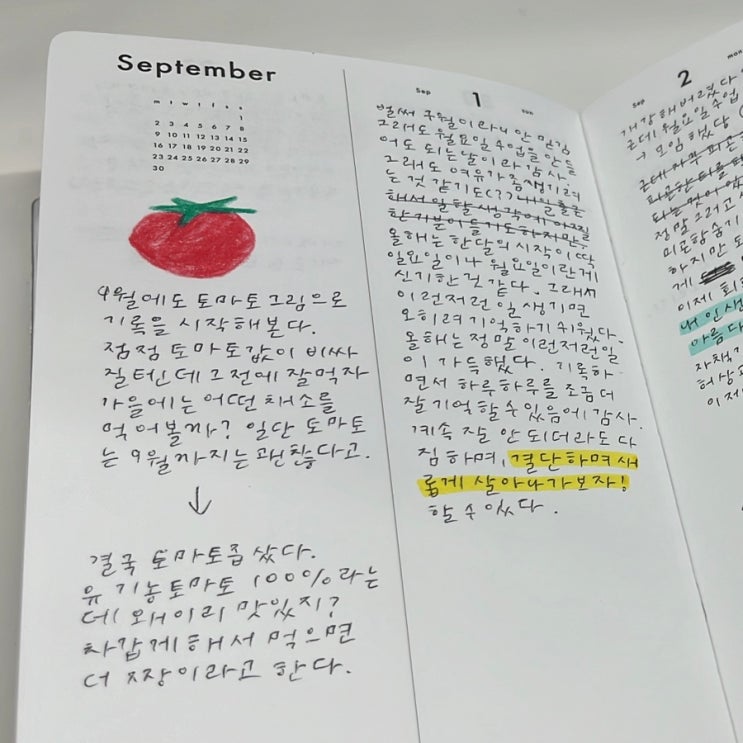 September
m t w t f s s
1
2 3 4 5 6 7 8
9 10 11 12 13 14 15
16 17 18 19 20 21 22
23 24 25 26 27 28 29
30
9월에도 토마토그림으로
기록을 시작해본다.
점점 토마토값이 비싸
질터인데 그전에 잘먹자
가을에는 어떤 채소를
먹어볼까? 일단 토마토
는 9월까지는 괜찮다고.
↓
결국 토마토즙 샀다.
유기농토마토 100%라는
데 왜이리 맛있지?
차갑게해서 먹으면
더 짱이라고 한다.
Sep 1 sun
벌써 9월이라니 안 믿김
그래도 월요일수업을 안들
어도 되는날이라 감사.
그래도 여유가 좀생기려
는 것 같기도(??
해서 일할 생각에 아찔
한기분이 들기도하지만
올해는 한달의 시작이 딱
일요일이나 월요일이란게
신기한것 같다. 그래서
이런저런 일 생기면
오히려 기억하기 쉬웠다.
올해는 정말 이런저런일
이 가득했다. 기록하
면서 하루하루를 조금더
잘 기억할수 있음에 감사.
계속 잘 안 되더라도 다
짐하며, 결단하며 새
롭게 살아나가보자!
할 수 있다.
Sep 2 mon
개강해버렸다
근데 월요일수업
→ 모임했당
근데 자꾸 피곤
정말 그러고
하지만
게
이제
내 인생
아름다
이제